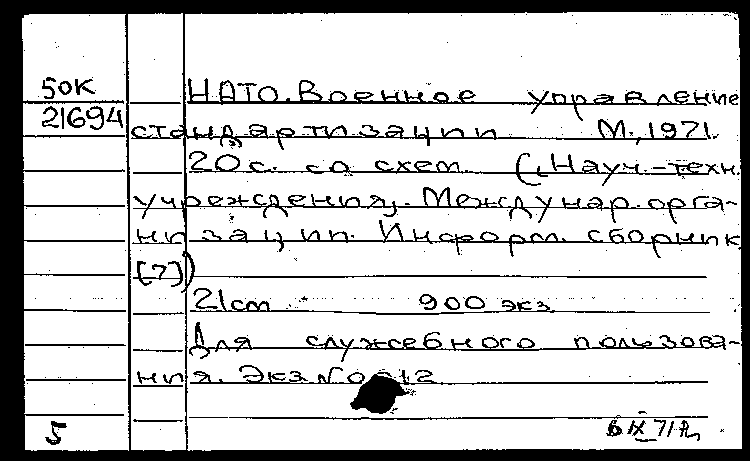 50К
21694
НАТО. Военное управление
стандартизации М., 1971.
20 с. со схем. („Науч.-техн.
учреждения„. Междунар. орга-
низации. Информ. сборник
[7])
21 см 900 экз.
Для служебного пользова-
ния. Экз. №
5
6 IX 71